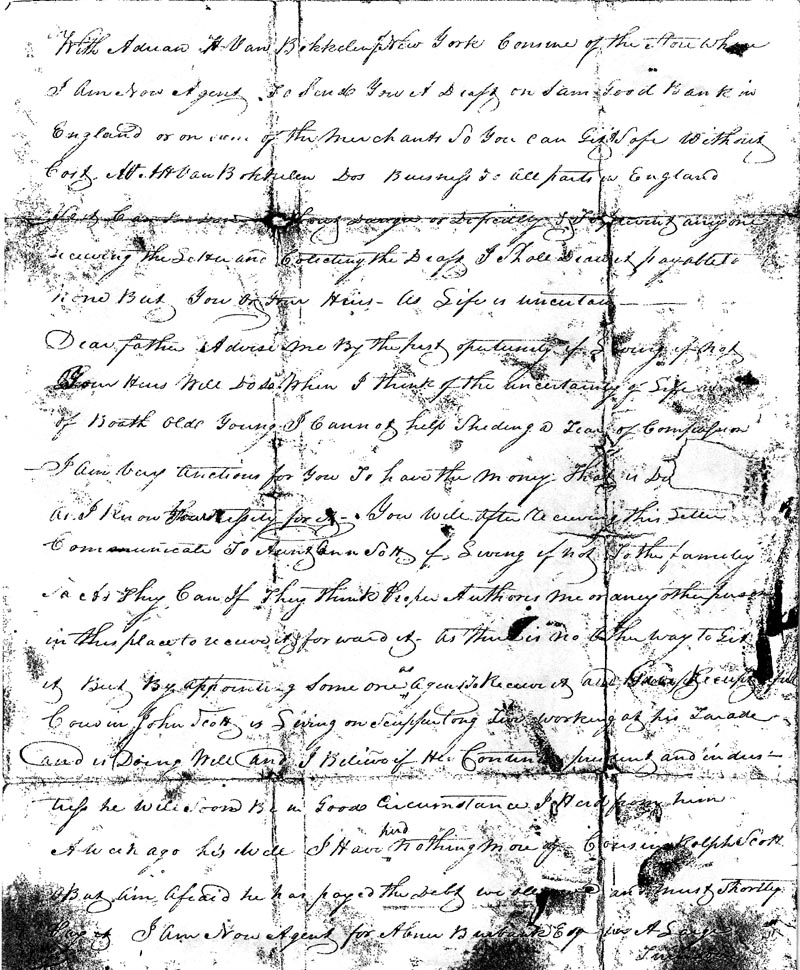 With Adrian H. Van Bokkelen New York Consine of the Store Whare
I Am Now Agent To Send You A Draft on Sam Good Bank in
England or on some of the Merchants So You Can Git Safe Without
Cost. A H Van Bokkelen Dos Buisness To all parts in England
or Speedilly To prevent any one
receiving the Letter and Colecting the Draft I Shall Draw it payable to
none But You or Your Heirs - As Life is uncertain
Dear father Advise me By the first opertunity if Living if not
Your Heirs Will Do So When I think of the uncertainty of Life
of Bouth Olde Young I Cannot help Sheding a Tear of Compassion
I Am Very Anctious for You To have the Money That is Du
As I Know Your for it - You Will After Receiving this Letter
Communicate To Aunt Ann Scott if Living if not To the familey
So As They Can If They think Proper Authoris me or aney other person
in this place to receive it & forward it - As there is no other way to Git
it But By Appointing Some one as Agent To Receive it and
Cousin John Scott is Living on Scuppernong working at his Traade
and is Doing Well and I Believe if He Continues prudent and indus-
tress he Will Soon Be in Good Circumstance I Herd from him
A Week ago his Well I Have herd Nothing More of Cousin Rolph Scott
But Aim Afraid he has payed the Debt we all and must Shortley
Pay I Am Now Agent for Abner Burbank Esq A Large